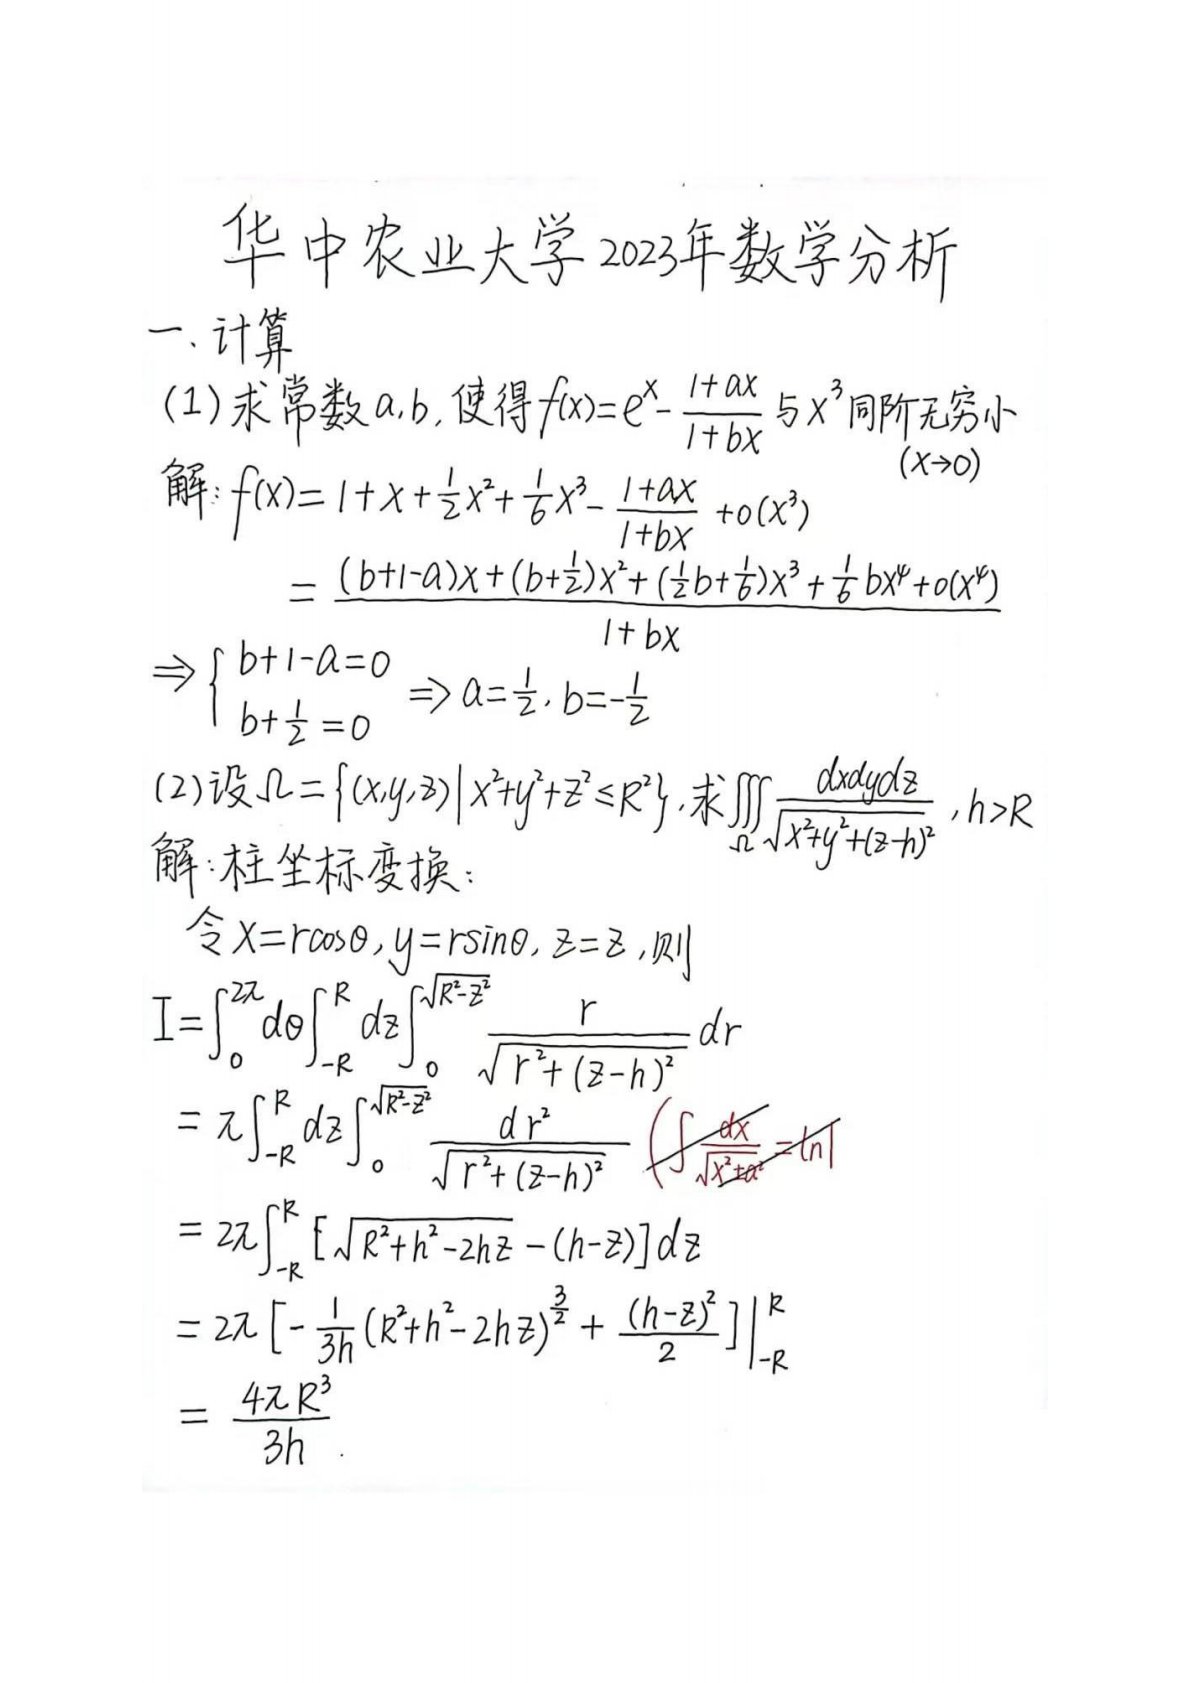 华中农业大学2023年数学分析
一.计算
(1)求常数a,b,使得f(x)=e^x-(1+ax)/(1+bx)与x³同阶无穷小
(x→0)
解:f(x)=1+x+½x²+⅙x³-(1+ax)/(1+bx)+o(x³)
=((b+1-a)x+(b+½)x²+(½b+⅙)x³+⅙bx⁴+o(x⁴))/(1+bx)
⇒{b+1-a=0
b+½=0 ⇒a=½,b=-½
(2)设Ω={(x,y,z)|x²+y²+z²≤R²},求∭_Ω dxdydz/√(x²+y²+(z-h)²),h>R
解:柱坐标变换:
令x=rcosθ,y=rsinθ,z=z,则
I=∫_0^{2π}dθ∫_{-R}^{R}dz∫_0^{√(R²-z²)} r/√(r²+(z-h)²) dr
=π∫_{-R}^{R}dz∫_0^{√(R²-z²)} dr²/√(r²+(z-h)²) (∫dx/√(x²+a²)=ln|
=2π∫_{-R}^{R}[√(R²+h²-2hz)-(h-z)]dz
=2π[-1/(3h)(R²+h²-2hz)^{3/2}+(h-z)²/2]|_{-R}^{R}
=4πR³/(3h).